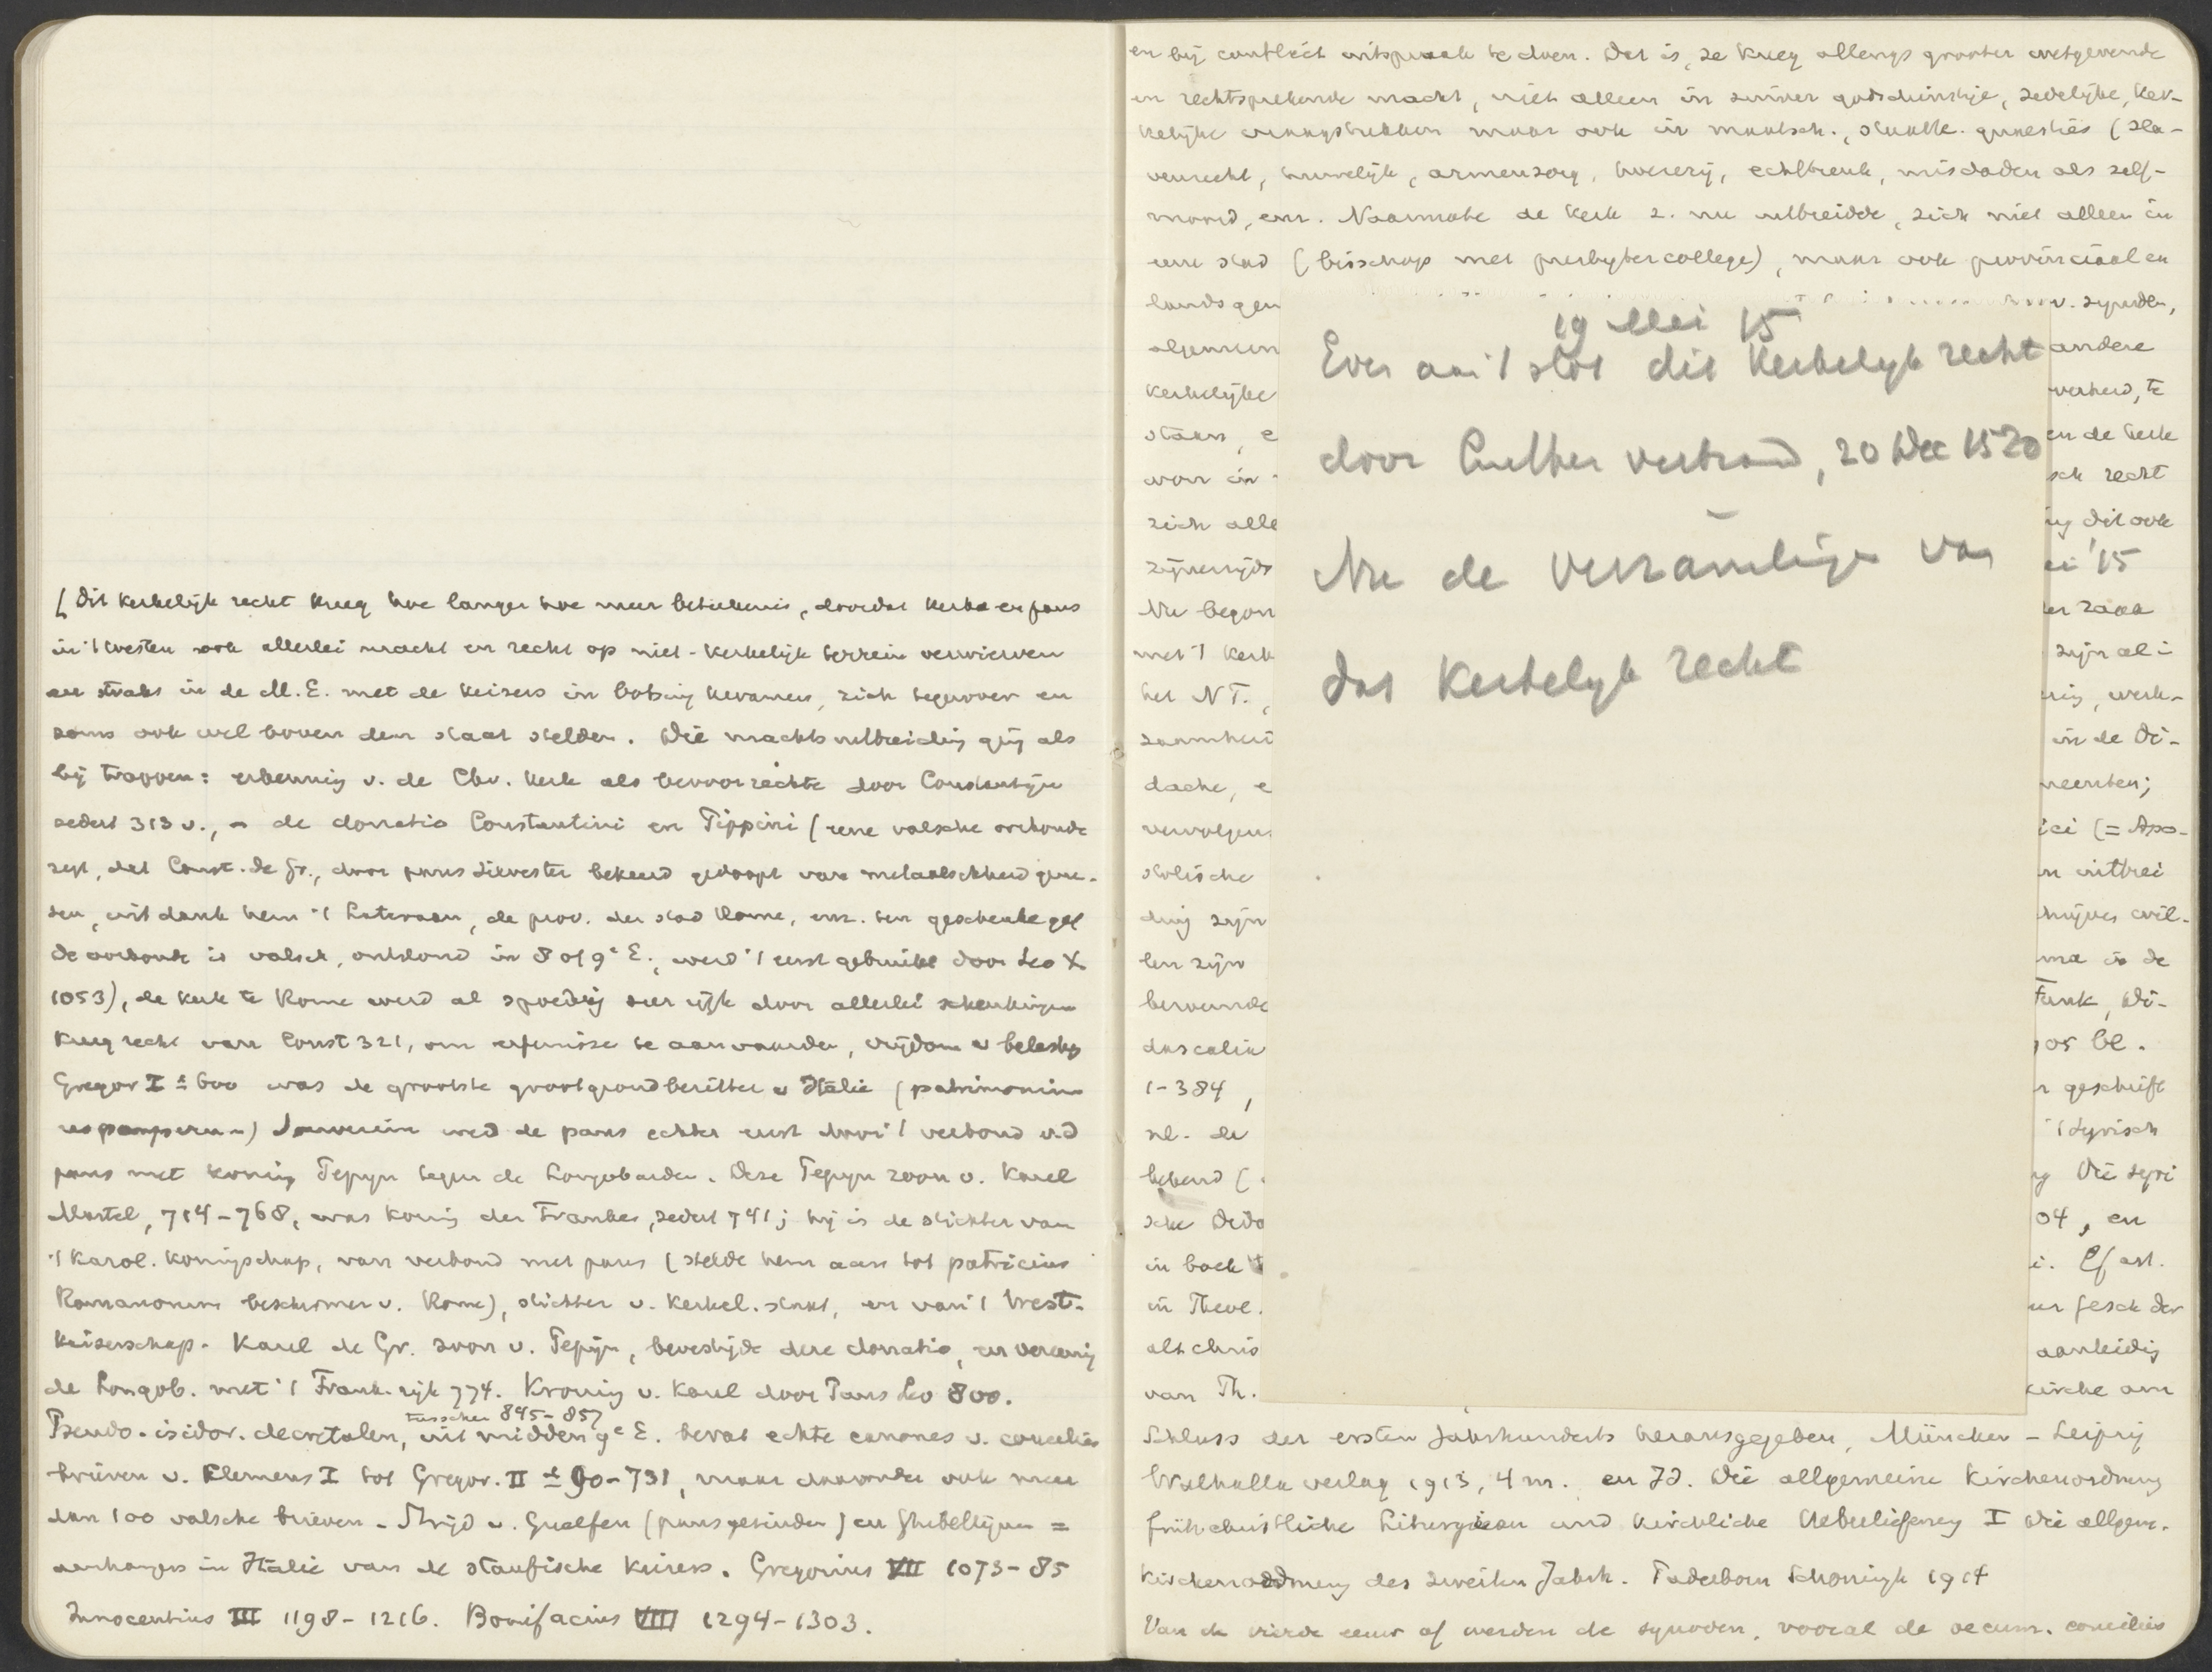 [Dit kerkelijk recht kreeg hoe langer hoe meer beteekenis, doordat kerk en paus
in 't westen ook allerlei macht en recht op niet-kerkelijk terrein verwierven
en straks in de M.E. met de keizers in botsing kwamen, zich tegenover en
soms ook wel boven den staat stelden. Die machtsuitbreiding ging als
bij trappen: erkenning v. de Chr. kerk als bevoorrechte door Constantijn
sedert 313 v., - de donatio Constantini en Pippini (eene valsche oorkonde
zegt, dat Const. de Gr., door paus Silvester bekeerd gedoopt van melaatschheid gene-
zen, uit dank hem 't Lateraan, de prov. der stad Rome, enz. ten geschenke gaf
de oorkonde is valsch, ontstond in 8 of 9e E., werd 't eerst gebruikt door Leo X
1053), de kerk te Rome werd al spoedig zeer rijk door allerlei schenkingen
kreeg recht van Const 321, om erfenisse te aanvaarden, vrijdom v belasting
Gregor I ± 600 was de grootste grootgrondbezitter v Italië (patrimonium
pauperum) Souverein werd de paus echter eerst door 't verbond v.d
paus met koning Pepyn tegen de Longobarden. Deze Pepyn zoon v. Karel
Martel, 714-768, was koning der Franken, sedert 741; hij is de stichter van
't Karol. koningschap, van verbond met paus (stelde hem aan tot patricius
Romanorum beschermer v. Rome), stichter v. kerkel. staat, en van 't West-
keizerschap. Karel de Gr. zoon v. Pepijn, bevestigde deze donatio, en vereenig
de Longob. met 't Frank. rijk 774. Kroning v. Karel door Paus Leo 800.
tusschen 845-857
Pseudo-isidor. decretalen, uit midden 9e E. bevat echte canones v. concilies
brieven v. Clemens I tot Gregor. II ± 90-731, maar daaronder ook meer
dan 100 valsche brieven - Strijd v. Guelfen (pausgezinden) en Ghibellijnen =
aanhangers in Italië van de staufische keizers. Gregorius VII 1073-85
Innocentius III 1198-1216. Bonifacius VIII 1294-1303.
en bij conflict uitspraak te doen. Dat is, ze kreeg allengs grooter wetgevende
en rechtsprekende macht, niet alleen in zuiver godsdienstige, zedelijke, ker-
kelijke vraagstukken maar ook in maatsch., staatk. quaesties (sla-
venrecht, huwelijk, armenzorg, hoererij, echtbreuk, misdaden als zelf-
moord, enz. Naarmate de kerk z. nu uitbreidde, zich niet alleen in
eene stad (bisschop met presbytercollege), maar ook provinciaal en
lands gen v. synoden,
algemeen andere
kerkelijke verheid, te
staan, e en de kerk
voor in sch recht
zich alle ng dit ook
zijnerzijds ei '15
Nu begon er zaak
met 't kerk zijn al i
het NT., ing, werk-
zaamheid in de Di-
dache, e meenten;
vervolgens ici (= Apo-
stolische n uittrei
ding zijn hijves wil-
len zijn ma is de
beroemde Funk, Di-
dascalia 905 bl.
1-384, r geschrift
nl. de 't syrisch
bekend ( ng Die syri
sche Dida 04, en
in boek i. Cf art.
in Theol. ur Gesch der
altchris aanleiding
van Th. kirche am
Schluss der ersten Jahrhunderts herausgegeben, München - Leipzig
Walhalla verlag 1913, 4 m. en Id. Die allgemeine Kirchenordnung
frühchristliche Liturgieen und kirchliche Ueberlieferung I Die allgem.
Kirchenordnung des zweiten Jahrh. Paderborn Schoningh 1914
Van de vierde eeuw af werden de synoden, vooral de oecum. concilies
19 Mei 15
Even aan 't slot dit Kerkelijk recht
door Luther verbrand, 20 Dec 1520
Nu de verzameling van
dat Kerkelijk recht